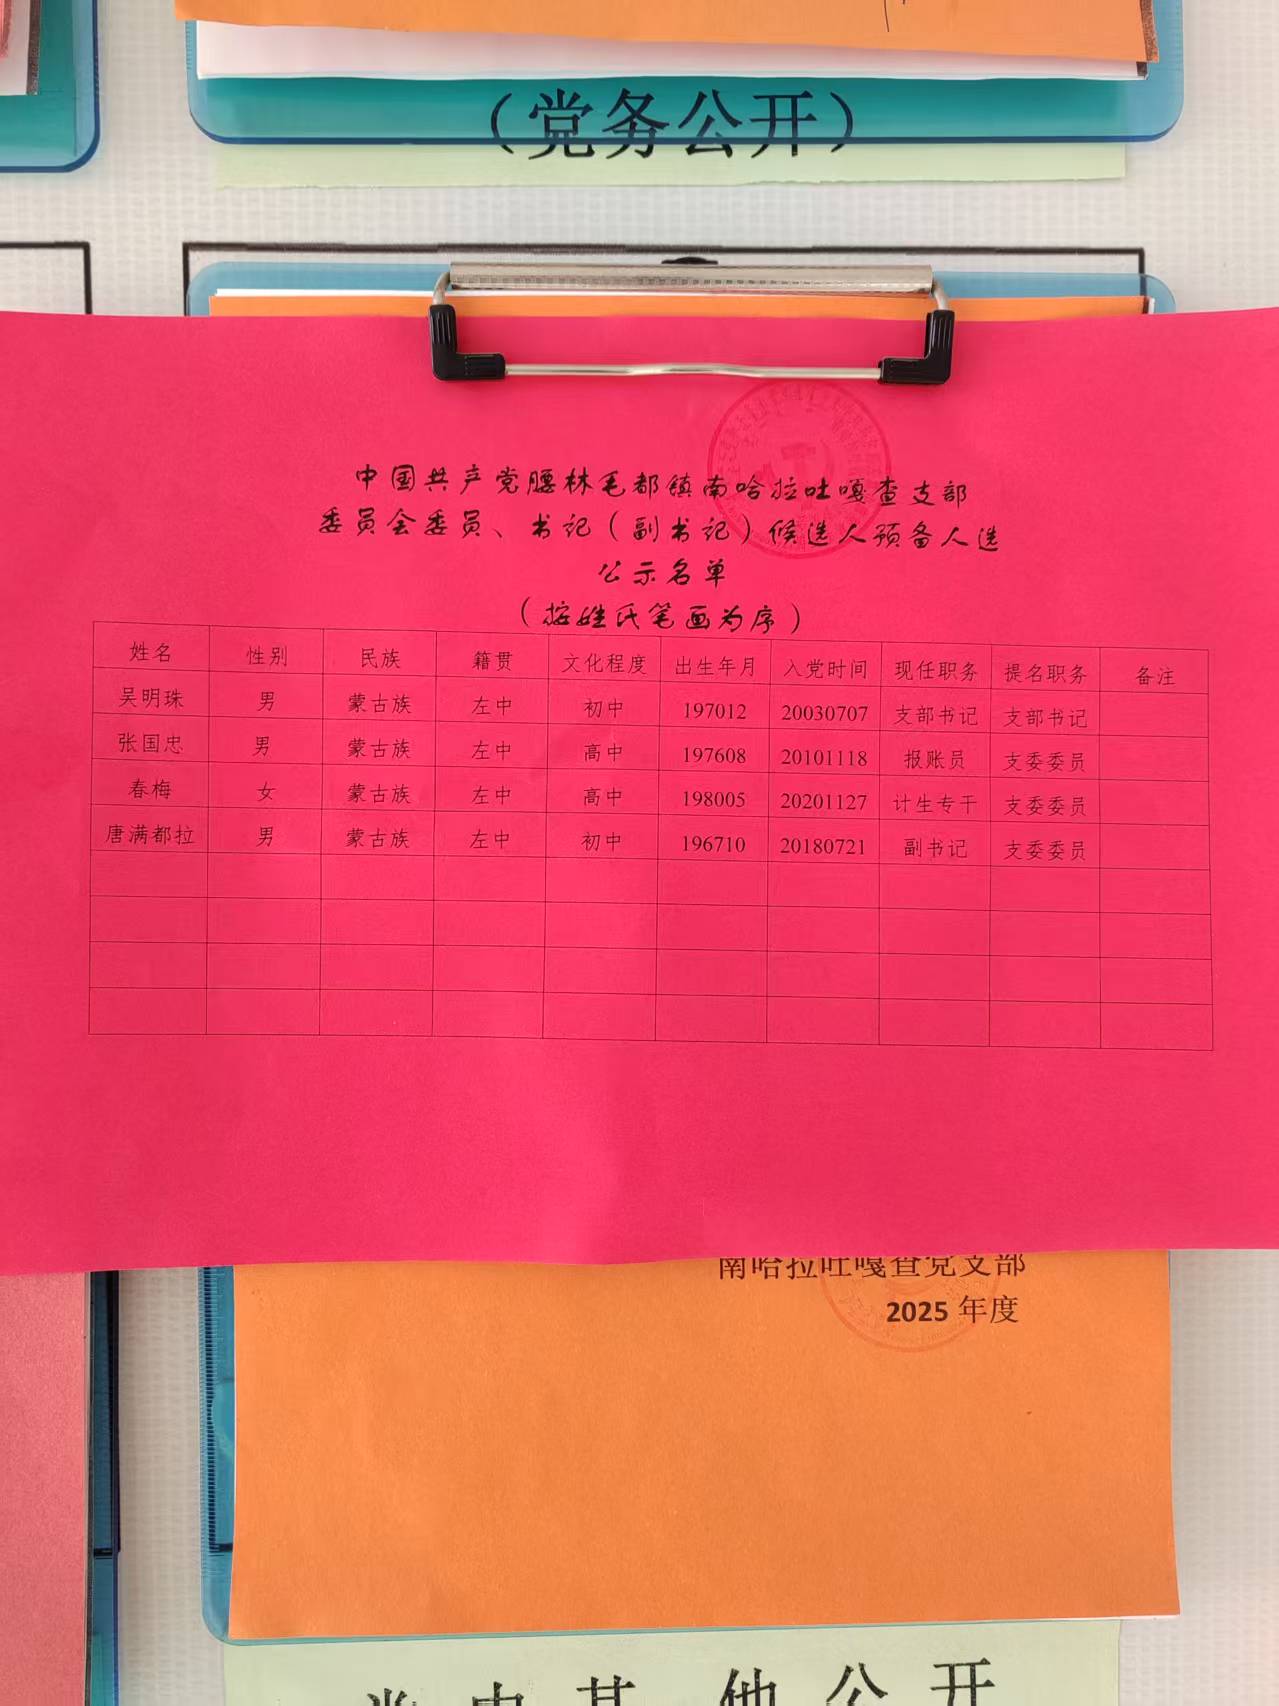 （党务公开）
中国共产党腰林毛都镇南哈拉吐嘎查支部
委员会委员、书记（副书记）候选人预备人选
公示名单
（按姓氏笔画为序）
姓名 性别 民族 籍贯 文化程度 出生年月 入党时间 现任职务 提名职务 备注
吴明珠 男 蒙古族 左中 初中 197012 20030707 支部书记 支部书记
张国忠 男 蒙古族 左中 高中 197608 20101118 报账员 支委委员
春梅 女 蒙古族 左中 高中 198005 20201127 计生专干 支委委员
唐满都拉 男 蒙古族 左中 初中 196710 20180721 副书记 支委委员
南哈拉吐嘎查党支部
2025 年度
其他公开